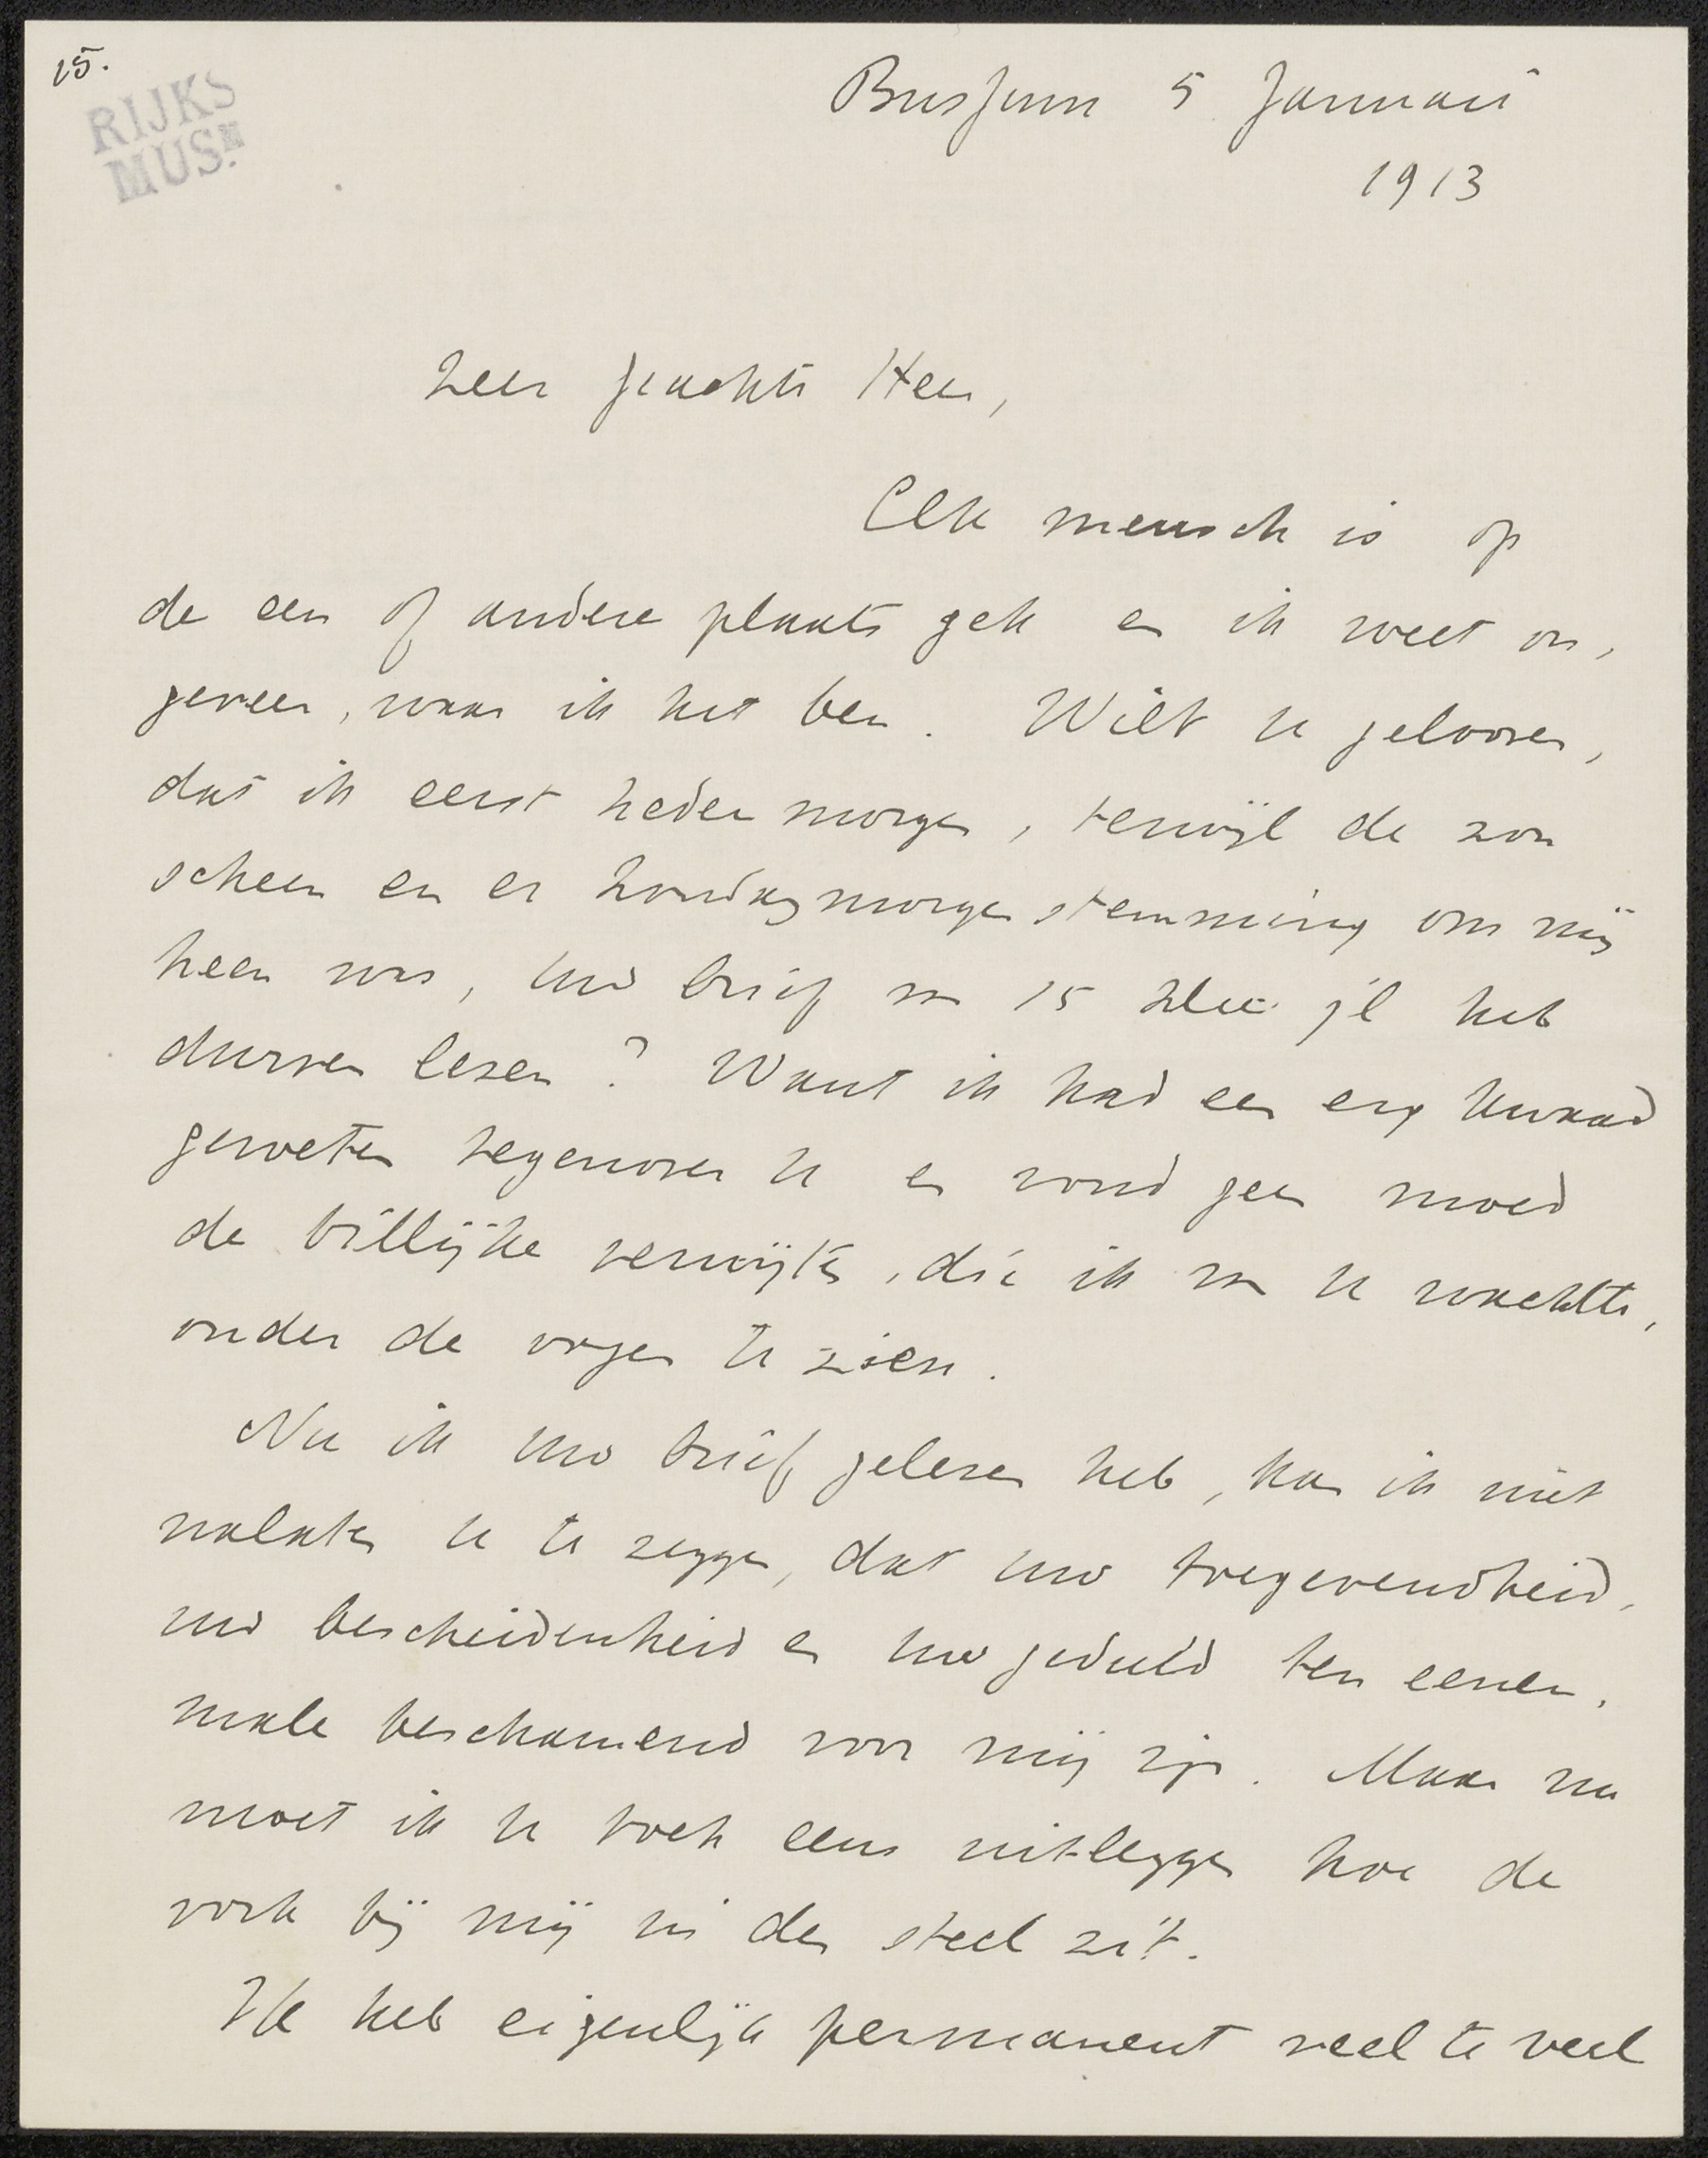 15.
RIJKS
MUSM.
Bussum 5 Januari
1913
Zeer geachte Heer,
Elk mensch is op
de een of andere plaats gek en ik weet on,
geveer, waar ik het ben. Wilt u gelooven,
dat ik eerst heden morgen, terwijl de zon
scheen en er Zondagmorgen stemming om mij
heen was, uw brief van 15 Dec. jl heb
durven lezen? Want ik had een erg kwaad
geweten tegenover u en vond geen moed
de billijke verwijten, die ik van u wachtte,
onder de oogen te zien.
Nu ik uw brief gelezen heb, kan ik niet
nalaten u te zeggen, dat uw toegevendheid,
uw bescheidenheid en uw geduld ten eenen,
male beschamend voor mij zijn. Maar nu
moet ik u toch eens uitleggen hoe de
vork bij mij in den steel zit.
Ik heb eigenlijk permanent veel te veel